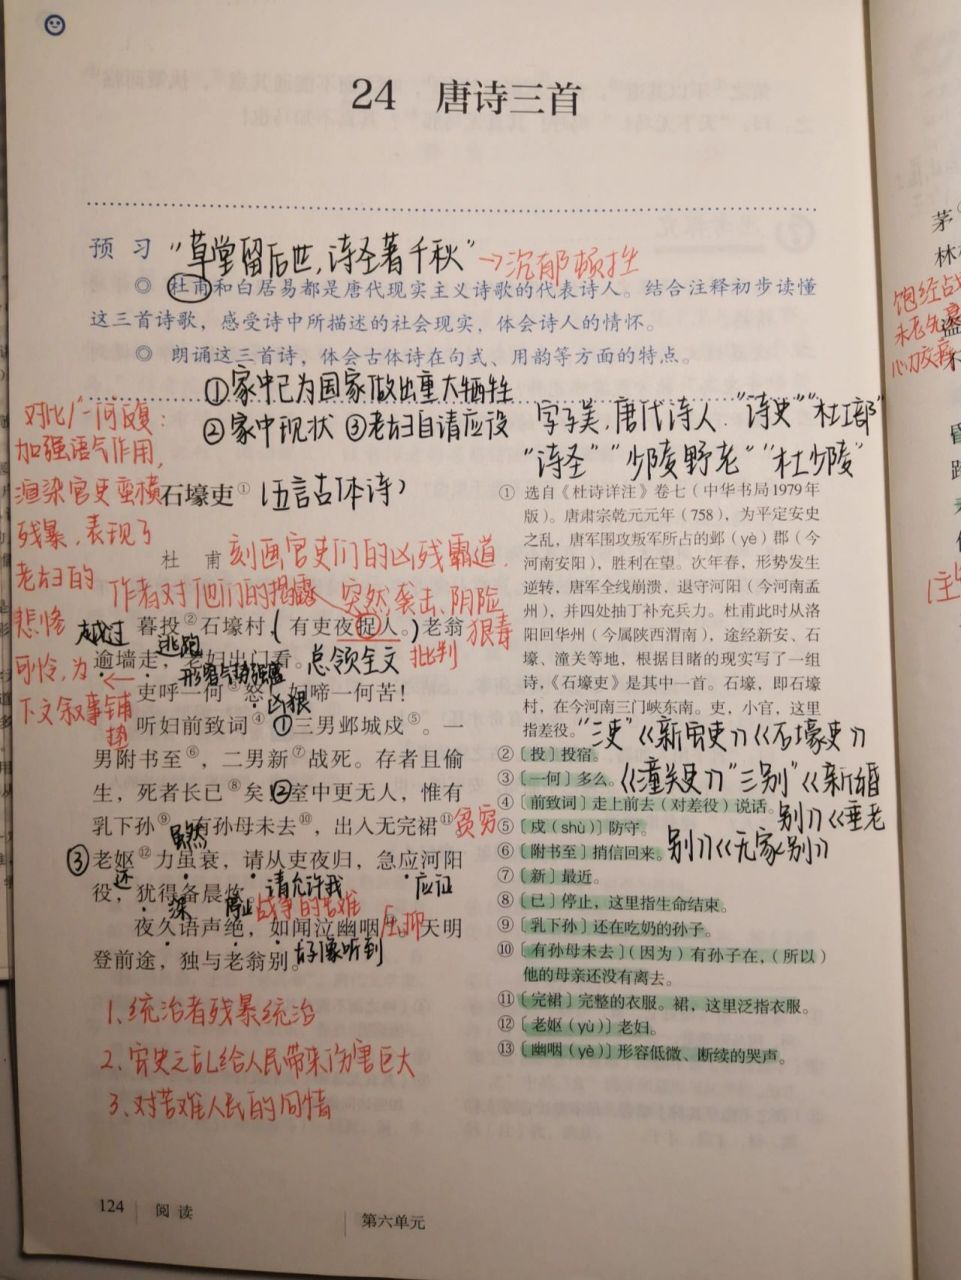 24 唐诗三首
预习 “草堂留后世，诗圣著千秋” →沉郁顿挫
◎ 杜甫和白居易都是唐代现实主义诗歌的代表诗人。结合注释初步读懂
这三首诗歌，感受诗中所描述的社会现实，体会诗人的情怀。
◎ 朗诵这三首诗，体会古体诗在句式、用韵等方面的特点。
①家中已为国家做出重大牺牲
②家中现状 ③老妇自请应役
字子美，唐代诗人“诗史”“杜工部”
“诗圣”“少陵野老”“杜少陵”
对比
加强语气作用，
渲染官吏蛮横
残暴，表现了
老妇的
悲惨
可怜，为
下文叙事铺
垫
石壕吏① （五言古体诗）
杜 甫
刻画官吏们的凶残霸道，
作者对他们的揭露
突然袭击、阴险
狠毒
批判
暮投②石壕村，（有吏夜捉人。）老翁
越过
逃跑
逾墙走，老妇出门看。总领全文
吏呼一何③怒！妇啼一何苦！
凶狠
听妇前致词④①三男邺城戍⑤。一
男附书至⑥，二男新⑦战死。存者且偷
生，死者长已⑧矣！②室中更无人，惟有
乳下孙⑨。有孙母未去⑩，出入无完裙⑪贫穷
虽然
③老妪⑫力虽衰，请从吏夜归，急应河阳
还
请允许我
应征
役，犹得备晨炊。
深
停止
战争的苦难
夜久语声绝，如闻泣幽咽⑬。天明
压抑
好像听到
登前途，独与老翁别。
1、统治者残暴统治
2、安史之乱给人民带来伤害巨大
3、对苦难人民的同情
① 选自《杜诗详注》卷七（中华书局1979年
版）。唐肃宗乾元元年（758），为平定安史
之乱，唐军围攻叛军所占的邺（yè）郡（今
河南安阳），胜利在望。次年春，形势发生
逆转，唐军全线崩溃，退守河阳（今河南孟
州），并四处抽丁补充兵力。杜甫此时从洛
阳回华州（今属陕西渭南），途经新安、石
壕、潼关等地，根据目睹的现实写了一组
诗，《石壕吏》是其中一首。石壕，即石壕
村，在今河南三门峡东南。吏，小官，这里
指差役。“三吏”《新安吏》《石壕吏》
② 〔投〕投宿。
③ 〔一何〕多么。《潼关吏》“三别”《新婚
④ 〔前致词〕走上前去（对差役）说话。别》《垂老
⑤ 〔戍（shù）〕防守。
⑥ 〔附书至〕捎信回来。别》《无家别》
⑦ 〔新〕最近。
⑧ 〔已〕停止，这里指生命结束。
⑨ 〔乳下孙〕还在吃奶的孙子。
⑩ 〔有孙母未去〕（因为）有孙子在，（所以）
他的母亲还没有离去。
⑪ 〔完裙〕完整的衣服。裙，这里泛指衣服。
⑫ 〔老妪（yù）〕老妇。
⑬ 〔幽咽（yè）〕形容低微、断续的哭声。
124 阅读
第六单元
茅
林
饱经战